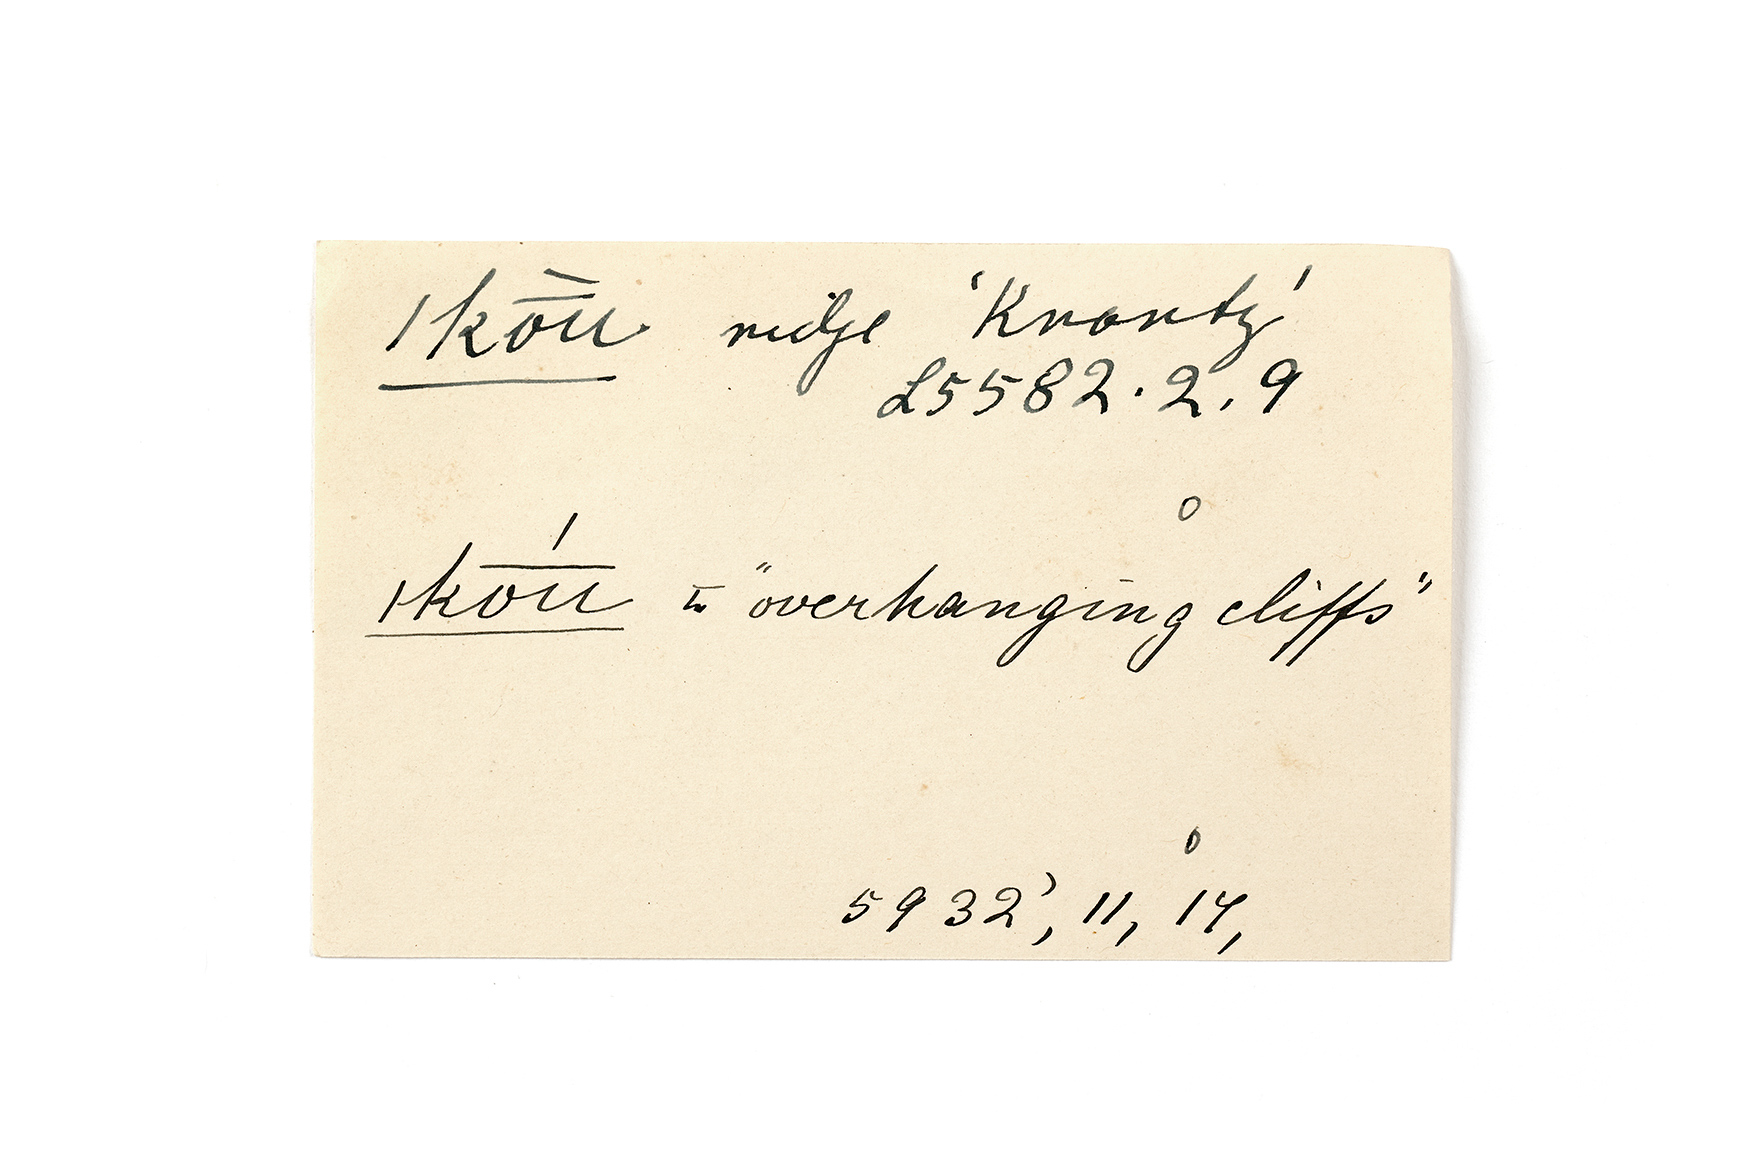 ǀkō̄ü ridge 'Krantz'
L5582.2.9
o
ǀkō̄́u "overhanging cliffs"
o
5932', 11, 14,